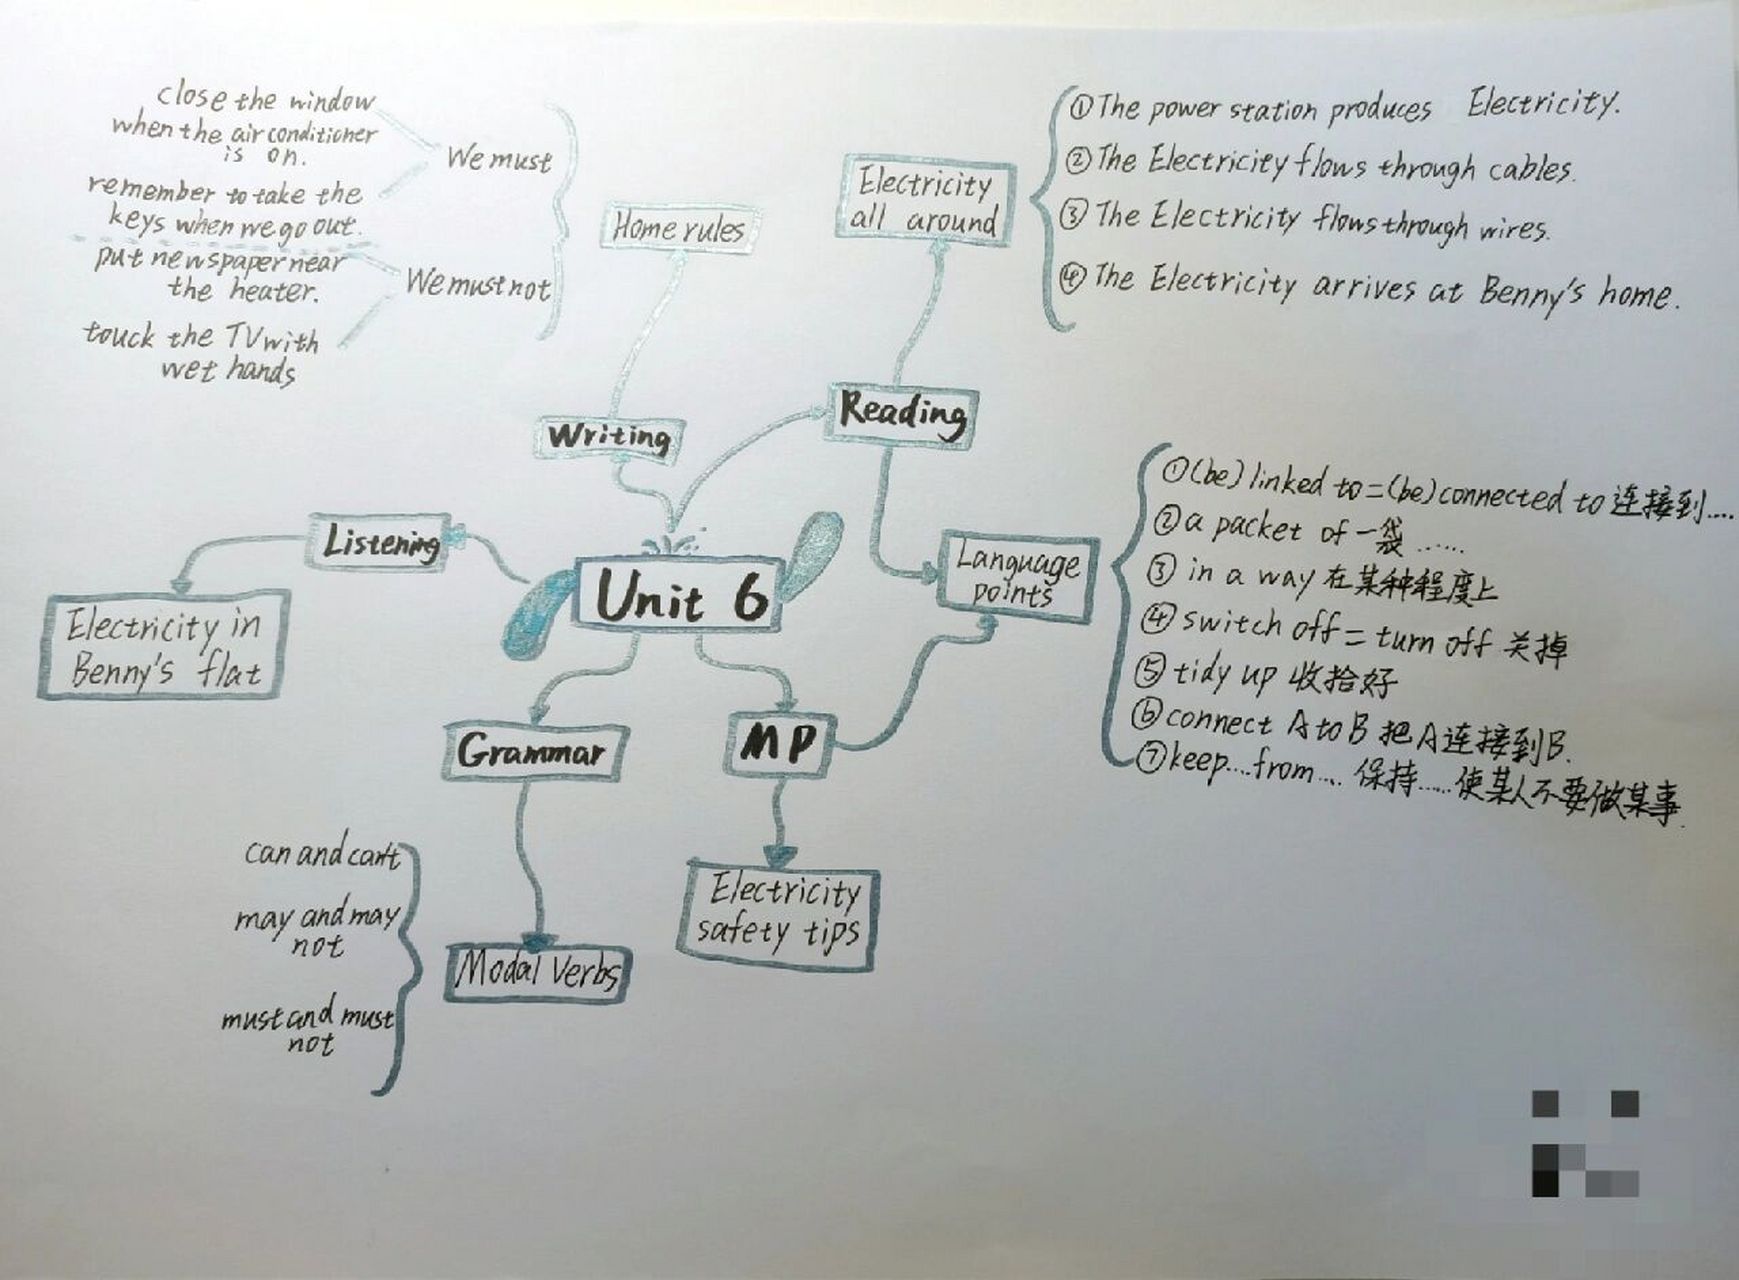 close the window
when the air conditioner
is on.
We must
remember to take the
keys when we go out.
put newspaper near
the heater.
We must not
touck the TV with
wet hands
Home rules
Writing
Electricity
all around
① The power station produces Electricity.
② The Electricity flows through cables.
③ The Electricity flows through wires.
④ The Electricity arrives at Benny's home.
Reading
Language
points
① (be) linked to = (be) connected to 连接到....
② a packet of 一袋 ......
③ in a way 在某种程度上
④ switch off = turn off 关掉
⑤ tidy up 收拾好
⑥ connect A to B 把A连接到B.
⑦ keep....from.... 保持......使某人不要做某事.
Listening
Electricity in
Benny's flat
Unit 6
Grammar
MP
can and can't
may and may
not
must and must
not
Modal Verbs
Electricity
safety tips